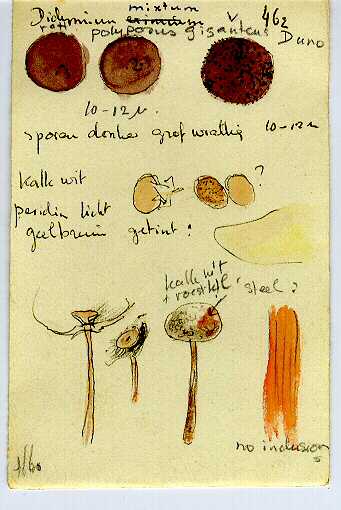 mixtum
Didymium eximium V. 462
op polyporus giganteus Duno
10-12 µ.
sporen donker grof wrattig 10-12 µ
kalk wit ?
peridie licht
geelbruin getint:
kalk wit
+ roestkl. steel:
no inclusions